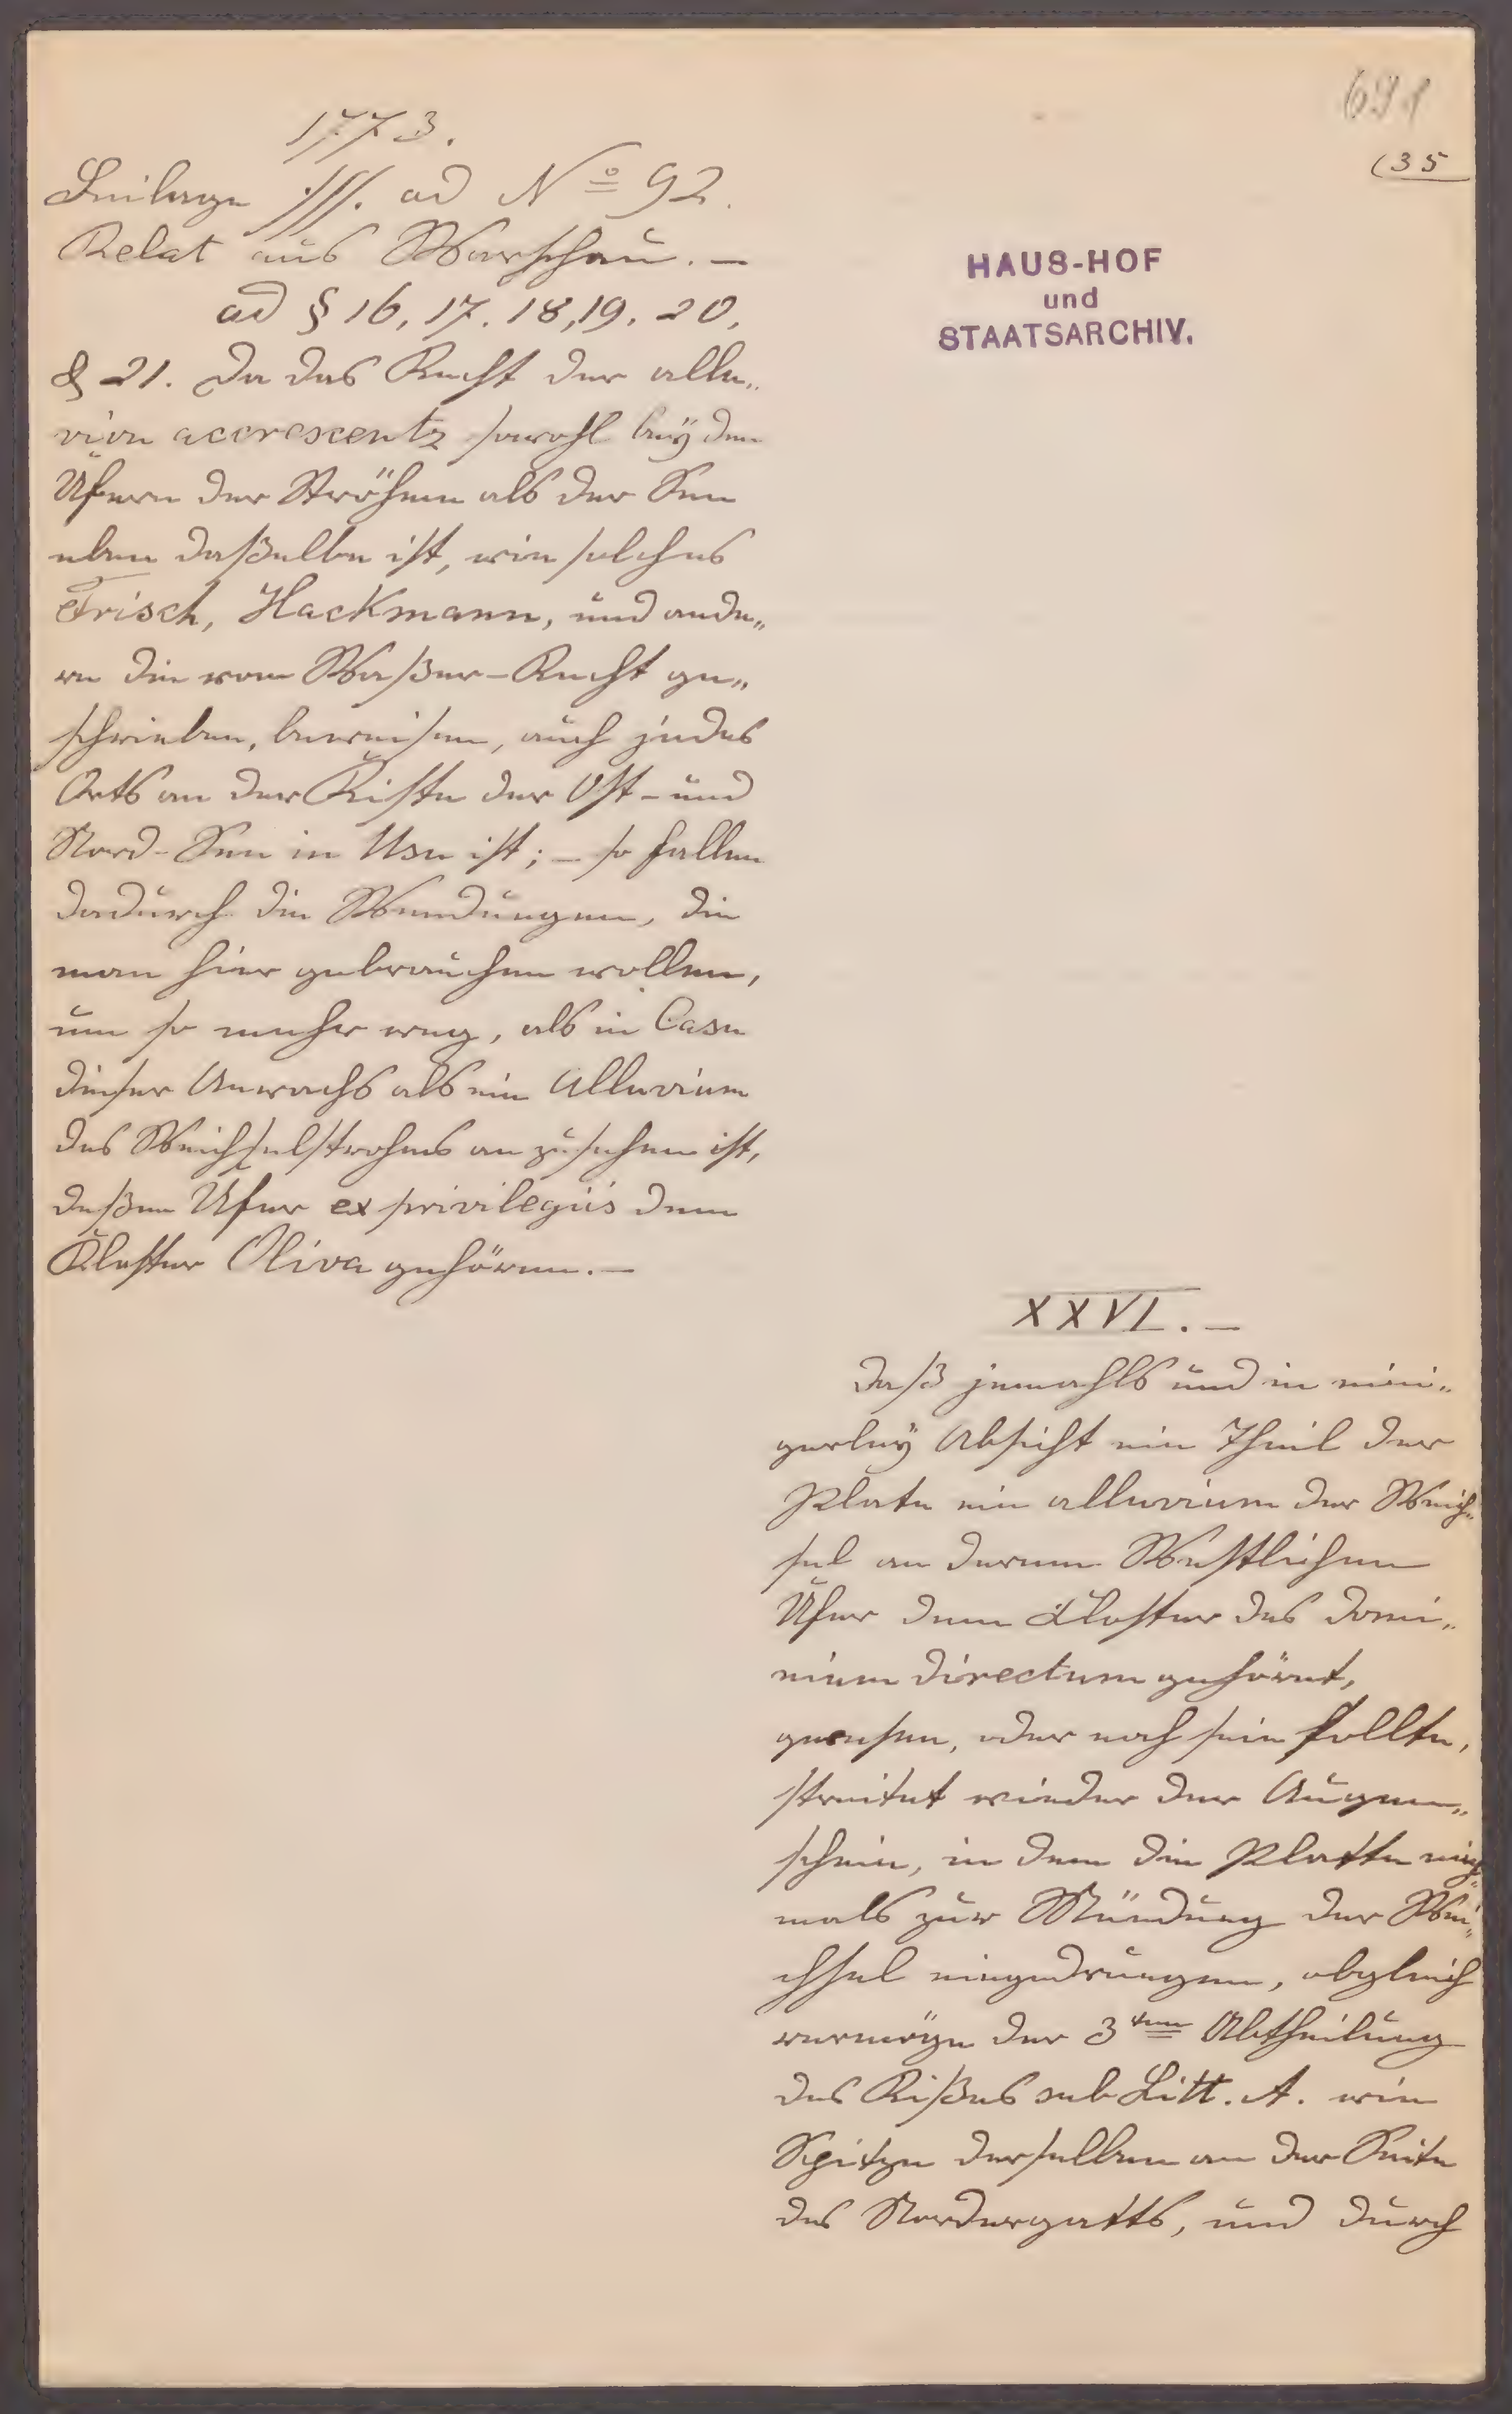 691
(35
1773.
Beilage ·///. ad No 92.
Relat aus Warschau. —
ad § 16, 17. 18, 19. 20.
& 21. Da das Recht der allu„
vion accrescentz sowohl beÿ den
Ufern der Ströhme als der See
eben daßelbe ist, wie solches
Frisch, Hackmann, und ande„
re die vom Waßer-Recht ge„
schrieben, beweisen, auch jedes
Orts an der Küste der Ost- und
Nord-See in Usu ist; — so fallen
dadurch die Wendungen, die
man hier gebrauchen wollen,
um so mehr weg, als in Casu
dieser Anwachs als ein Alluvium
des Weichselstrohms an zu sehen ist,
deßen Ufer ex privilegiis dem
Kloster Oliva gehören. —
HAUS-HOF
und
STAATSARCHIV.
XXVI. —
Daß jemahls und in eini„
gerleÿ Absicht ein Theil der
Plate ein alluvium der Weich„
sel an deren Westlichen
Ufer dem Kloster das domi„
nium directum gehöret,
gewesen, oder noch sein sollte,
streitet wieder den Augen„
schein, in dem die Platte nie„
mals zur Mündung der Wei„
chsel eingedrungen, obgleich
vermöge der 3ten Abtheilung
des Rißes sub Litt. A. eine
Spitze derselben an der Seite
des Nordergatts, und durch